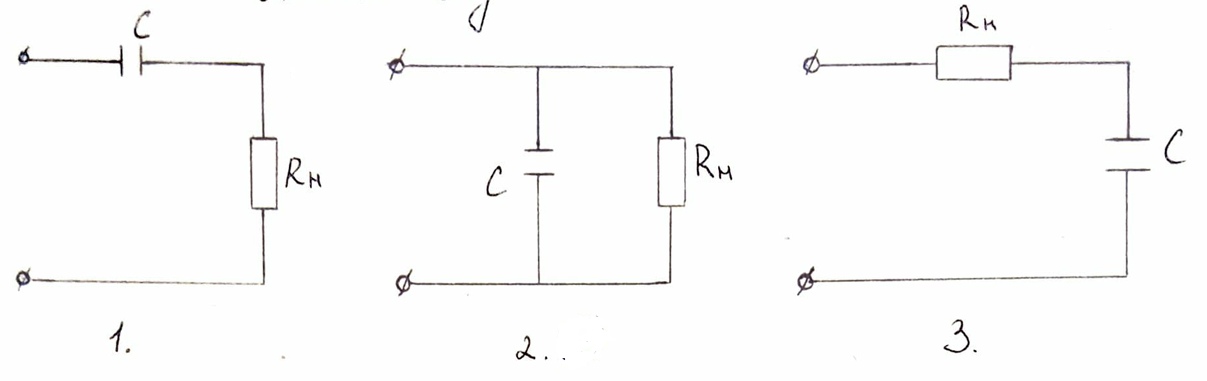 C
Rн
1.
C
Rн
2..
Rн
C
3.